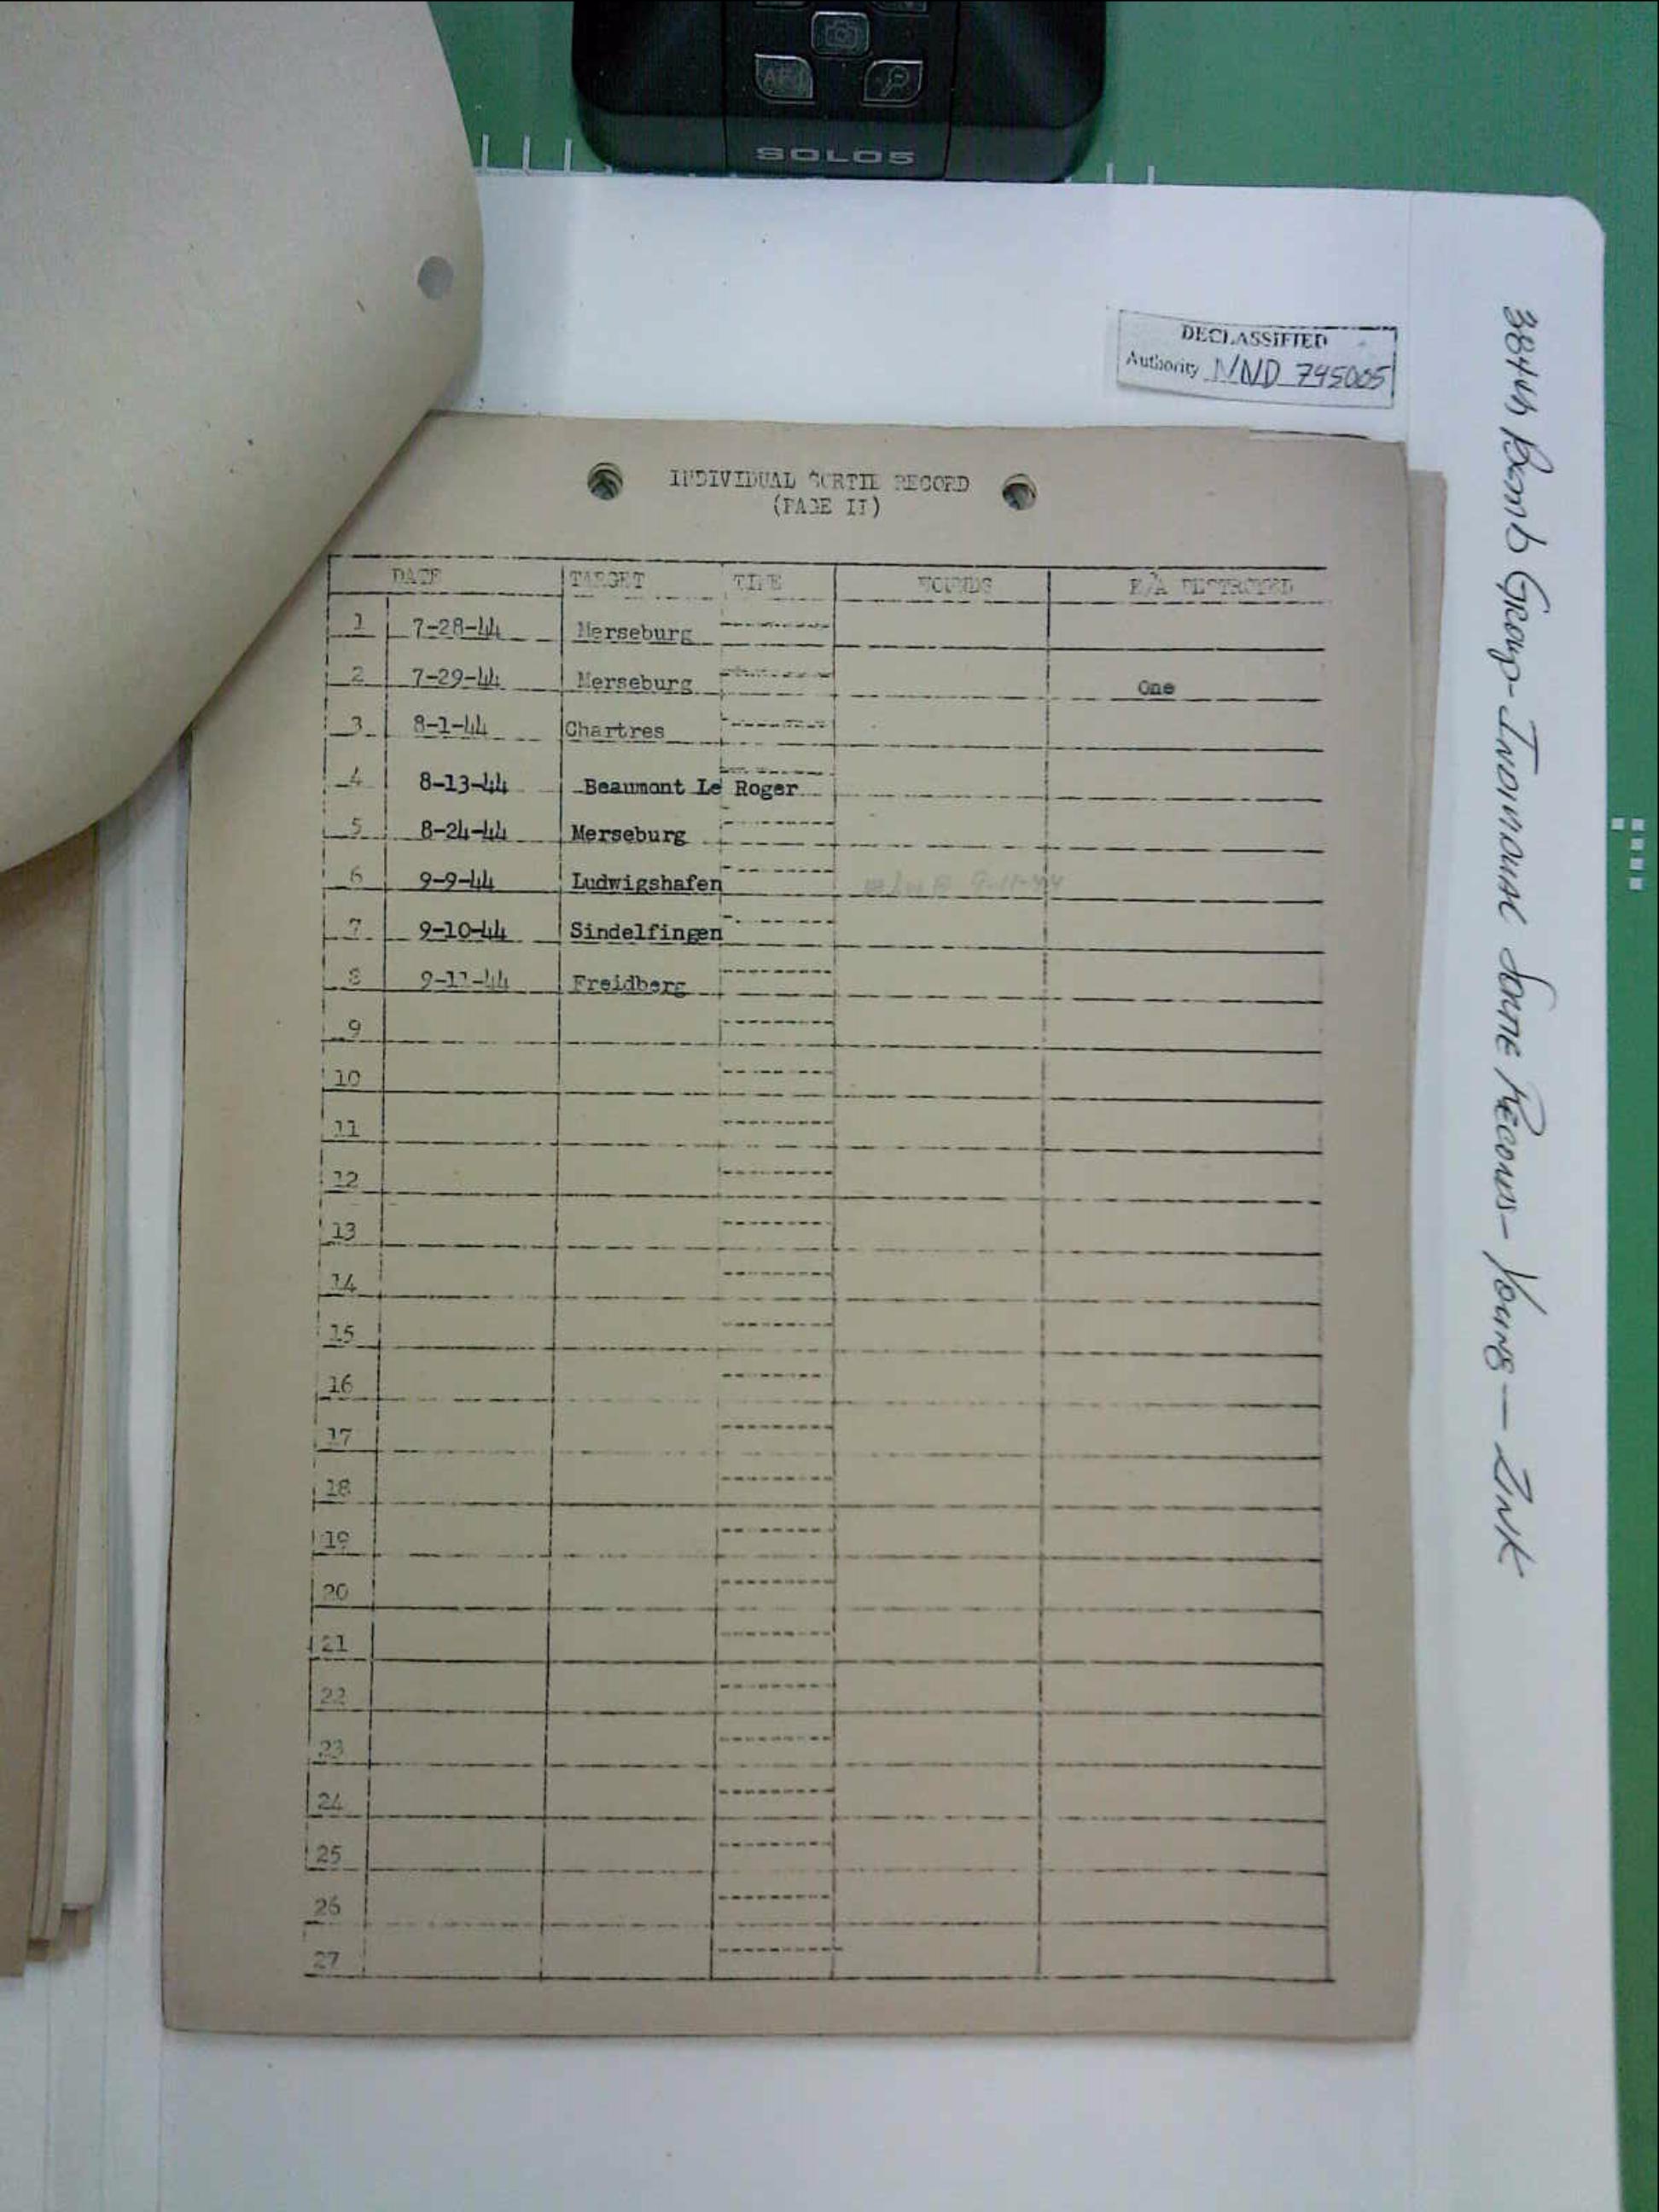 SOLO5
DECLASSIFIED
Authority NND 745005
384th Bomb Group - Individual Sortie Records - Young - Zink
INDIVIDUAL SORTIE RECORD
(PAGE II)
DATE TARGET TIME WOUNDS E/A DESTROYED
1 7-28-44 Merseburg
2 7-29-44 Merseburg One
3 8-1-44 Chartres
4 8-13-44 Beaumont Le Roger
5 8-24-44 Merseburg
6 9-9-44 Ludwigshafen 9-11-44
7 9-10-44 Sindelfingen
8 9-11-44 Freidberg
9
10
11
12
13
14
15
16
17
18
19
20
21
22
23
24
25
26
27